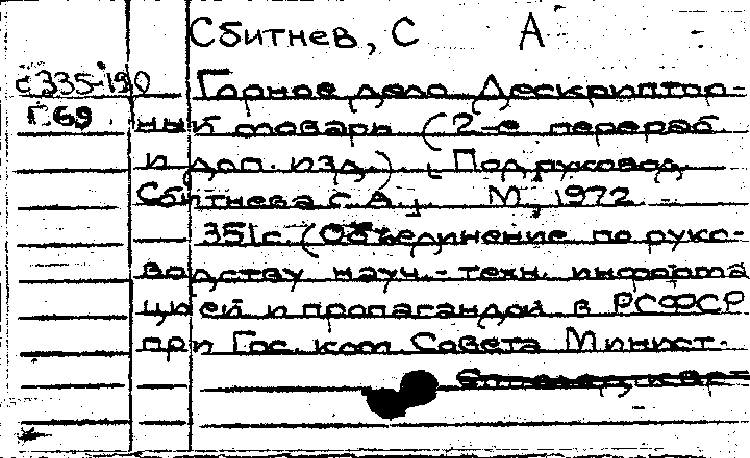 Сбитнев, С А
с335-190 Горное дело Дескриптор-
Г.69 ный товарь (2-е перераб.
и доп. изд.). [Под руковод.
Сбитнева С. А.] М., 1972.
351с. (Объединение по руко-
водству науч.-техн. информа
цией и пропагандой в РСФСР
при Гос. ком Совета Минист-